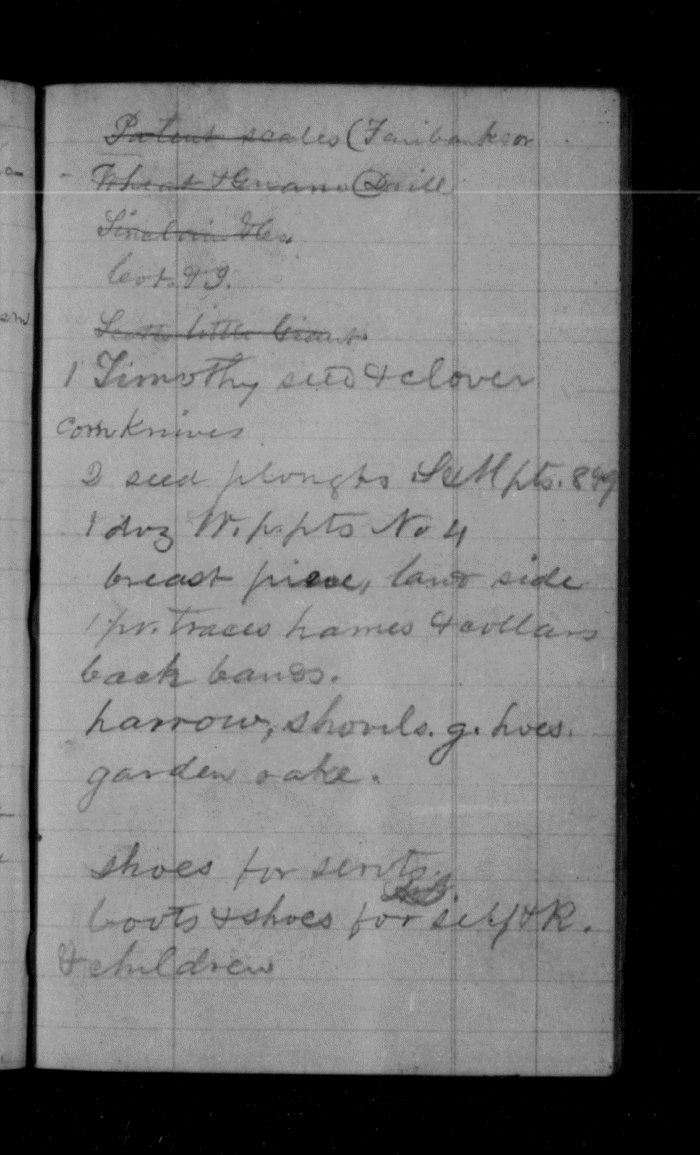 Patent scales (Fairbanks or
Wheat & Guano Drill
Sinclair &
Cor.
Scotts little Giant
1 Timothy seed & clover
corn knives
2 seed ploughs S&M pts. 8
1 doz W. p. pts No 4
breast piece, land side
1 pr. traces hames & collars
back bands.
harrow, shovels. g. hoes.
garden rake.
shoes for servts.
boots & shoes for self & R.
& children